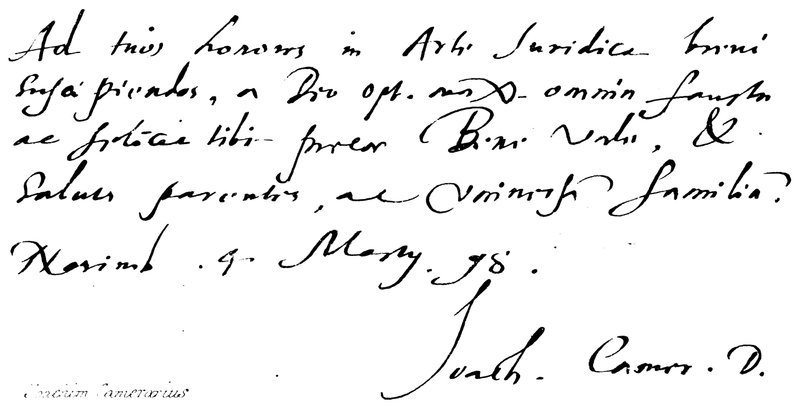 Ad tuos honores in Arte Iuridica brevi
suscipiendos, a Deo opt. max. omnia fausta
ac felicia tibi precor Bene vale, &
saluta parentes, ac universā familiā.
Norimb. 4. Martij. 98.
Ioach. Camer. D.
Joachim Camerarius